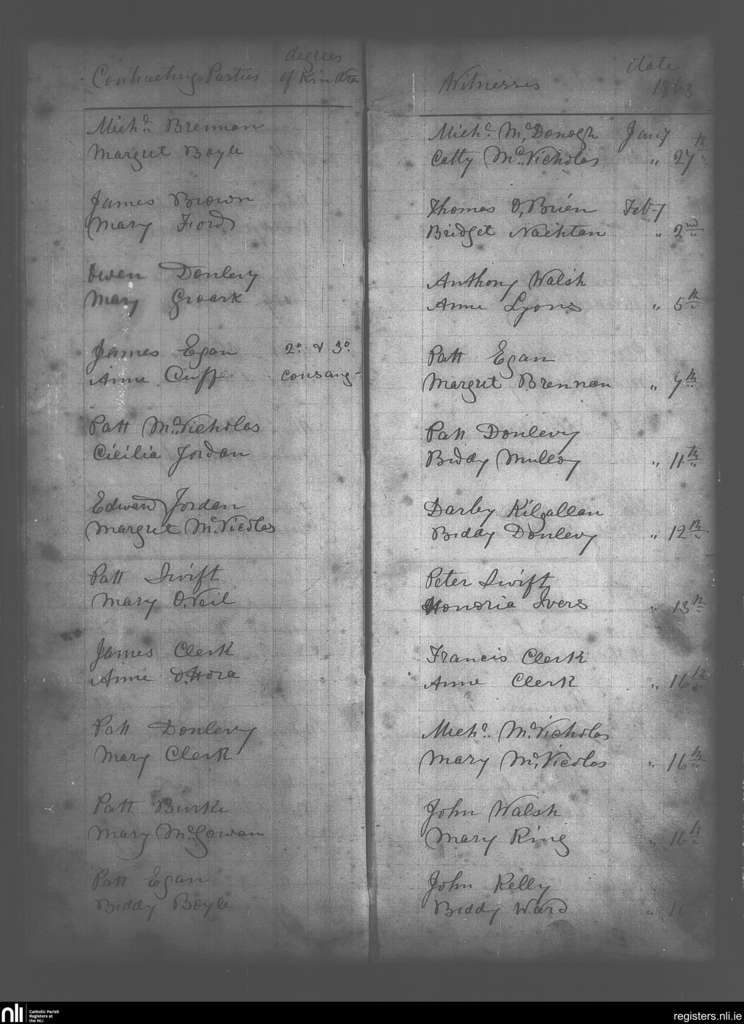 Contracting Parties
degrees
of Kindred
Witnesses
date
1863
Michl. Brennan
Margret Boyle
Michl. McDonogh Jany
Catty McNicholas " 27th
James Brown
Mary Ford
Thomas O,Brien Feby
Bridget Nachten " 2nd
Owen Donlevy
Mary Groark
Anthony Walsh
Anne Lyons " 5th
James Egan 2o. & 3o.
Anne Cuff consang-
Patt Egan
Margret Brennan " 7th
Patt McNicholas
Cicilia Jordan
Patt Donlevy
Biddy Mulloy " 11th
Edward Jordan
Margret McNicolas
Darby Kilgallan
Biddy Donlevy " 12th
Patt Swift
Mary O,Neil
Peter Swift
Honoria Ivers " 13th
James Clerk
Anne O,Hora
Francis Clerk
Anne Clerk " 16th
Patt Donlevy
Mary Clerk
Michl. McNicholas
Mary McNicolas " 16th
Patt Burke
Mary McGowan
John Walsh
Mary King " 16th
Patt Egan
Biddy Boyle
John Kelly
Biddy Ward "
nli
Catholic Parish
Registers at
the NLI
registers.nli.ie